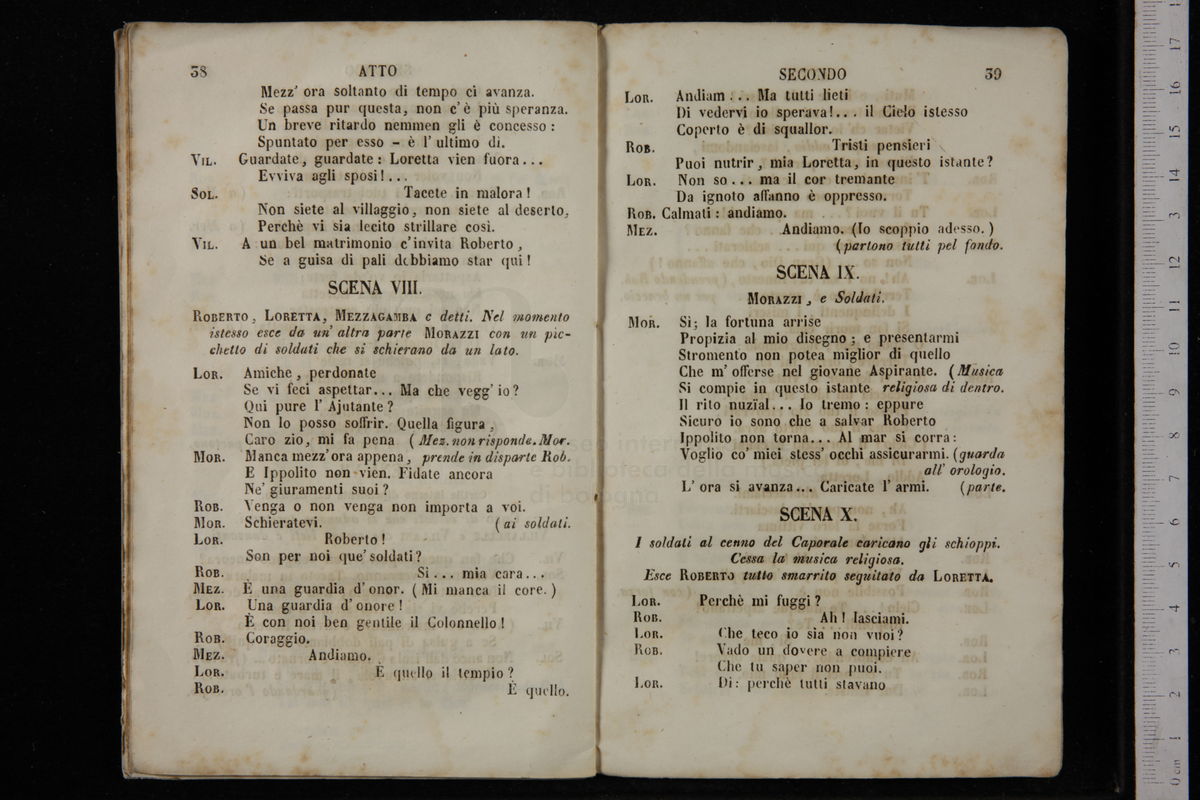 38 ATTO
Mezz' ora soltanto di tempo ci avanza.
Se passa pur questa, non c' è più speranza.
Un breve ritardo nemmen gli è concesso :
Spuntato per esso - è l' ultimo dì.
VIL. Guardate, guardate : Loretta vien fuora...
Evviva agli sposi!...
SOL. Tacete in malora !
Non siete al villaggio, non siete al deserto,
Perchè vi sia lecito strillare così.
VIL. A un bel matrimonio c' invita Roberto,
Se a guisa di pali debbiamo star qui !
SCENA VIII.
ROBERTO, LORETTA, MEZZAGAMBA e detti. Nel momento
istesso esce da un' altra parte MORAZZI con un pic-
chetto di soldati che si schierano da un lato.
LOR. Amiche, perdonate
Se vi feci aspettar... Ma che vegg' io ?
Qui pure l' Ajutante ?
Non lo posso soffrir. Quella figura,
Caro zio, mi fa pena (Mez. non risponde. Mor.
MOR. Manca mezz' ora appena, prende in disparte Rob.
E Ippolito non vien. Fidate ancora
Ne' giuramenti suoi ?
ROB. Venga o non venga non importa a voi.
MOR. Schieratevi. (ai soldati.
LOR. Roberto !
Son per noi que' soldati ?
ROB. Sì... mia cara...
MEZ. È una guardia d' onor. (Mi manca il core.)
LOR. Una guardia d' onore !
È con noi ben gentile il Colonnello !
ROB. Coraggio.
MEZ. Andiamo.
LOR. È quello il tempio ?
ROB. È quello.
SECONDO 39
LOR. Andiam... Ma tutti lieti
Di vedervi io sperava!... il Cielo istesso
Coperto è di squallor.
ROB. Tristi pensieri
Puoi nutrir, mia Loretta, in questo istante ?
LOR. Non so... ma il cor tremante
Da ignoto affanno è oppresso.
ROB. Calmati : andiamo.
MEZ. Andiamo. (Io scoppio adesso.)
(partono tutti pel fondo.
SCENA IX.
MORAZZI, e Soldati.
MOR. Sì; la fortuna arrise
Propizia al mio disegno ; e presentarmi
Stromento non potea miglior di quello
Che m' offerse nel giovane Aspirante. (Musica
Si compie in questo istante religiosa di dentro.
Il rito nuzïal... Io tremo : eppure
Sicuro io sono che a salvar Roberto
Ippolito non torna... Al mar si corra :
Voglio co' miei stess' occhi assicurarmi. (guarda
all' orologio.
L' ora si avanza... Caricate l' armi. (parte.
SCENA X.
I soldati al cenno del Caporale caricano gli schioppi.
Cessa la musica religiosa.
Esce ROBERTO tutto smarrito seguitato da LORETTA.
LOR. Perchè mi fuggi ?
ROB. Ah ! lasciami.
LOR. Che teco io sia non vuoi ?
ROB. Vado un dovere a compiere
Che tu saper non puoi.
LOR. Di : perchè tutti stavano